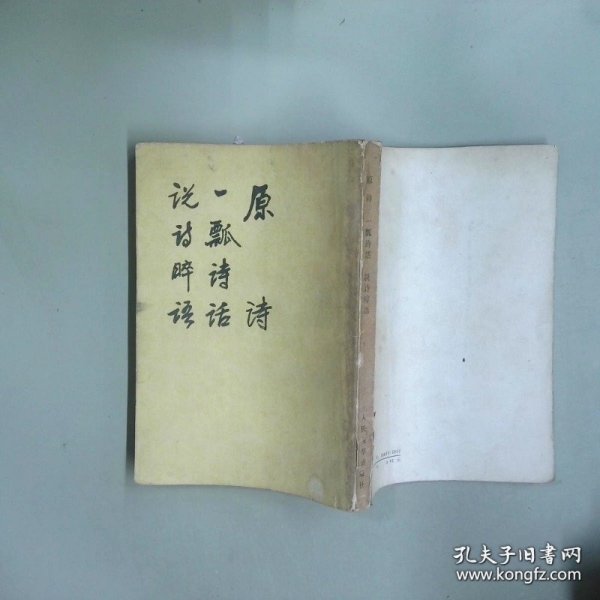 原诗
一瓢诗话
说诗晬语
原诗 一瓢诗话 说诗晬语
人民文学出版社
孔夫子旧书网
www.kongfz.com